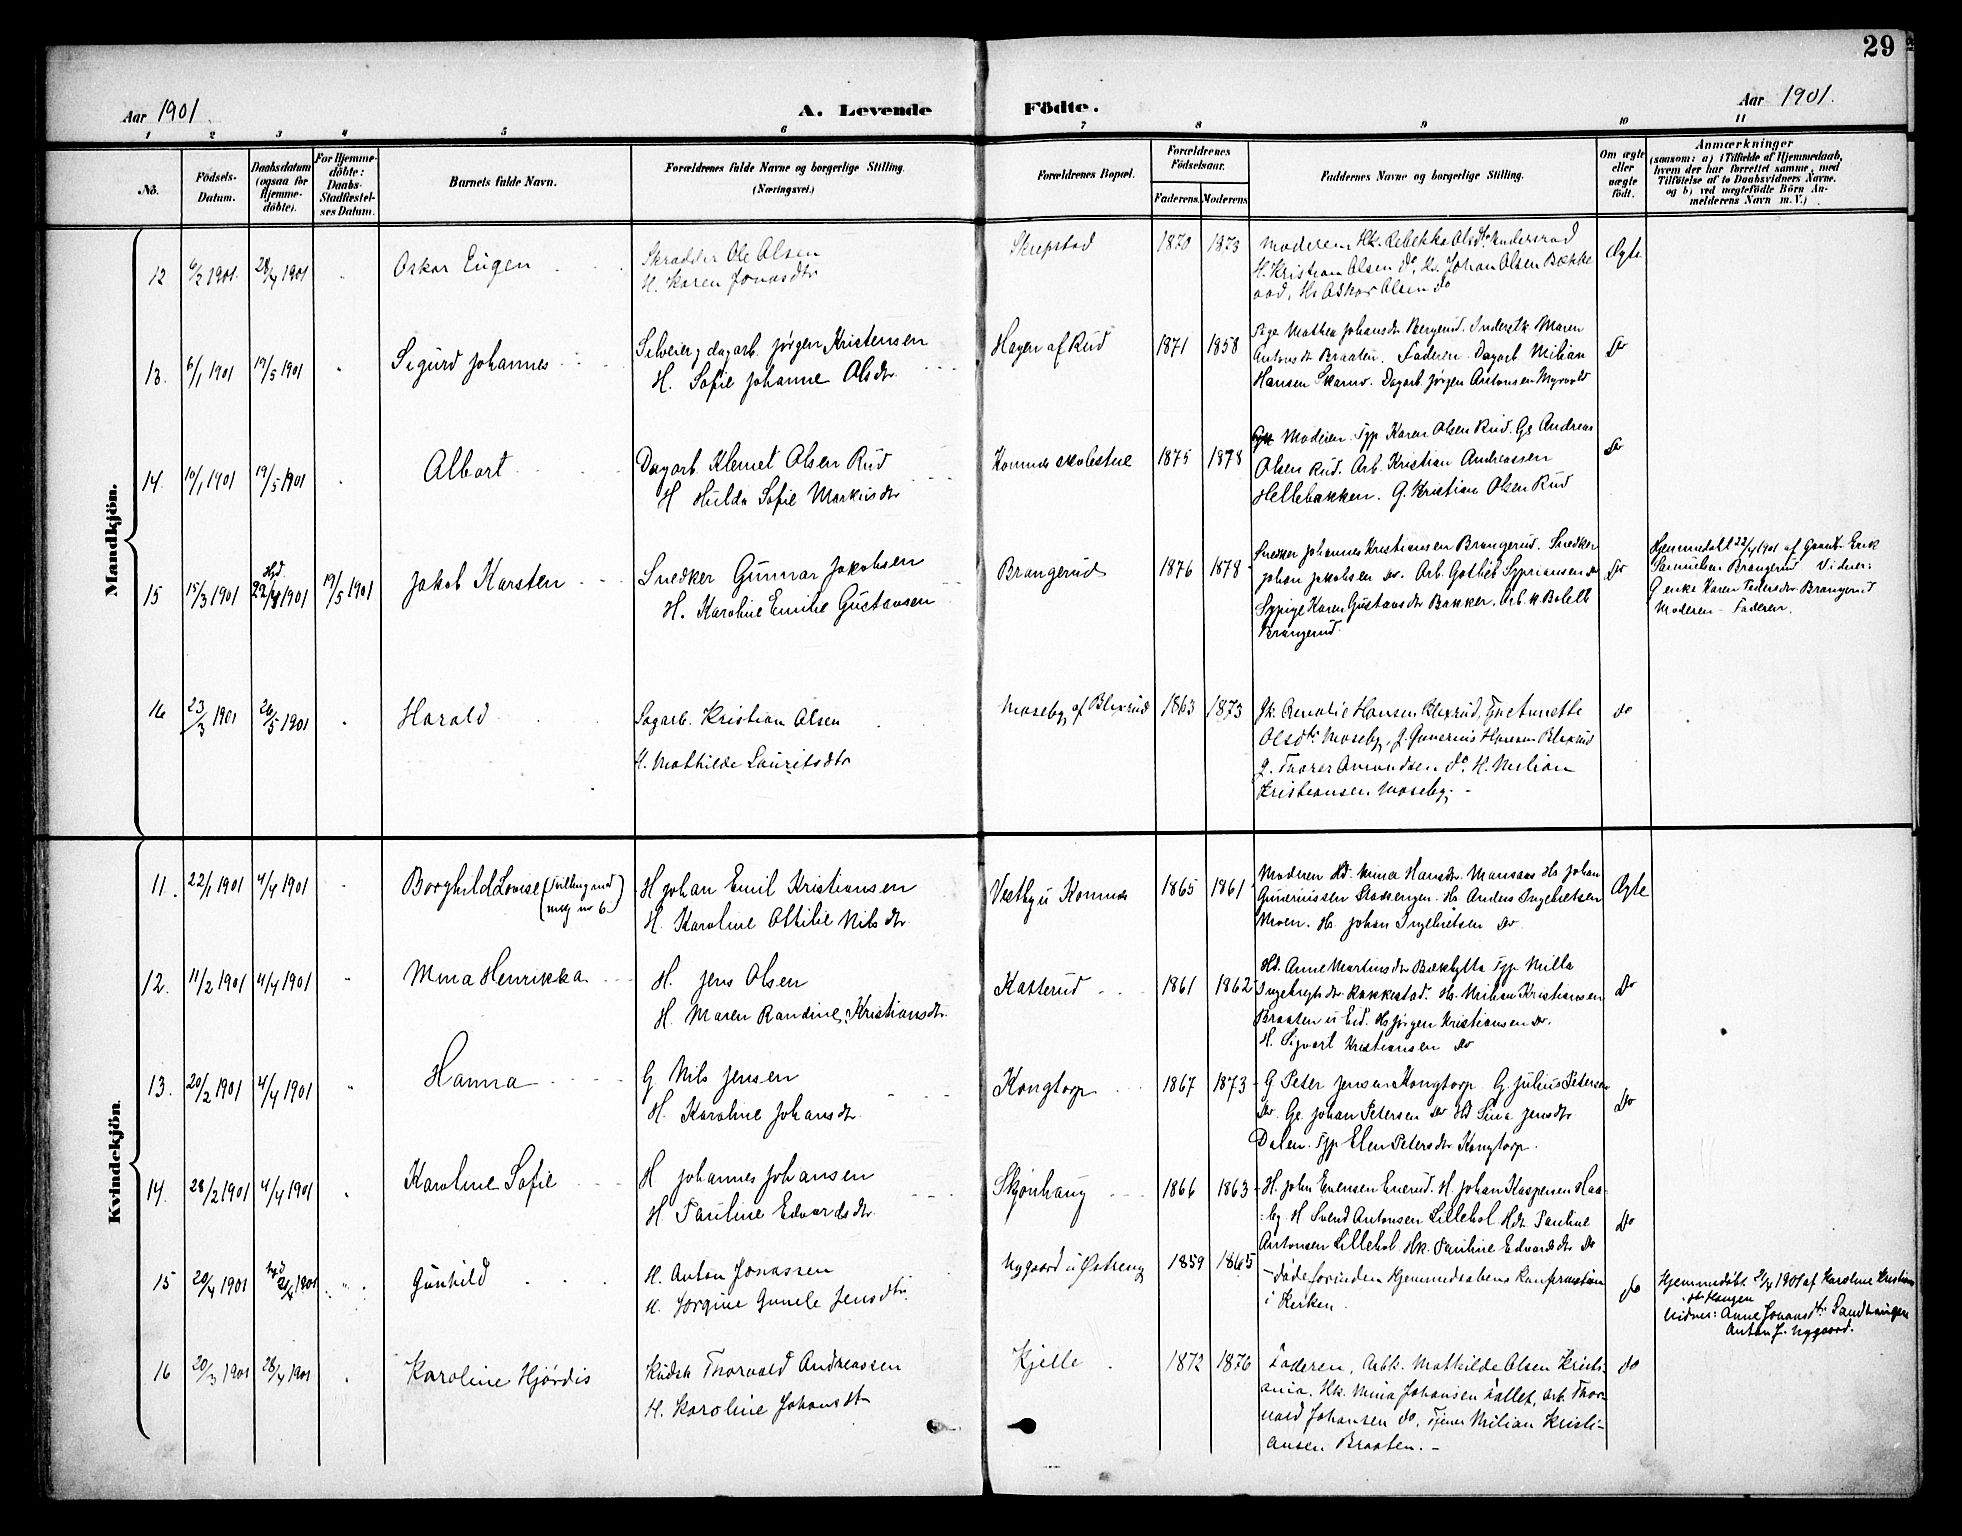 29
Aar 1901
A. Levende
Födte.
Aar 1901.
1 2 3 4 5 6 7 8 9 10 11
No.
Födsels-
Datum.
Daabsdatum
(ogsaa for
Hjemme-
döbte).
For Hjemme-
döbte:
Daabs-
Stadfæstel-
ses Datum.
Barnets fulde Navn.
Forældrenes fulde Navne og borgerlige Stilling.
(Næringsvei.)
Forældrenes Bopæl.
Forældrenes
Födselsaar.
Faderens.
Moderens
Faddernes Navne og borgerlige Stilling.
Om ægte
eller
uægte
födt.
Anmærkninger
(saasom: a) i Tilfælde af Hjemmedaab,
hvem der har forrettet samme, med
Tilföielse af to Daabsvidners Navne,
og b) ved uægtefödte Börn An-
melderens Navn m. V.)
Mandkjön.
12 6/2 1901. 28/4 1901 " Oskar Eugen
Skrædder Ole Olsen
H. Karen Jonasdtr
Skrepstad 1870 1873
Moderen Hk. Rebekka Olsdtr
H. Kristian Olsen do, Hs. Johan Olsen Bække
Hs Oskar Olsen do
Ægte
13. 6/1 1901 19/5 1901 " Sigurd Johannes
Selveier, dagarb. Jørgen Kristensen
H. Sofie Johanne Olsdtr.
Hagen af Rud 1871 1858
Pige Mathea Johansdtr Bergerud. Maren
Antonsdtr Braaten. Faderen. Dagarb Milian
Hansen Skarnv. Dagarb Jørgen Antonsen Myrvold
Do
14. 10/1 1901 19/5 1901 " Albert
Dagarb Klemet Olsen Rud
H Hulda Sofie Markusdtr
Komnes skolestue 1875 1878
Moderen. Typ Karen Olsen Rud. Gs Andreas
Olsen Rud. Arb. Kristian Andreassen
Hellebakken. G. Kristian Olsen Rud
Do
15 15/3 1901 Hjd. 22/4 1901 19/5 1901 Jakob Karsten
Snedker Gunnar Jakobsen
H. Karoline Emilie Gustavsen
Brangerud 1876 1878
Snedker Johannes Kristiansen Brangerud. Snedker
Johan Jakobsen do. Arb. Gotleb Sypriansen do
Sypige Karen Gustavsdtr Bakker. Arb. K Bolette
Brangerud.
Do
Hjemmedøbt 22/4 1901 af Erik
Samuelsen Brangerud Vidner:
G enke Karen Pedersdtr Brangerud
Moderen - Faderen.
16 23/3 1901 26/5 1901 " Harald
Sagarb. Kristian Olsen
H. Mathilde Lauritsdtr
Moseby af Blixrud 1863 1873
Gk. Amalie Hansen Blixrud,
Olsdtr. Moseby, G. Gunerius Hansen Blixrud
G. Thorer Amundsen do. H. Milian
Kristiansen Moseby. -
do
Kvindekjön.
11. 22/1 1901 4/4 1901 " Borghild Lovise (Tvilling med
mkj nr 6.)
H Johan Emil Kristiansen
H. Karoline Ottilie Nilsdtr
Vestby u Komnes 1865 1861
Moderen Hd. Mina Hansdtr. Hs Johan
Guneriussen Hs. Anders Ingebretsen
Moen. Hs. Johan Ingebretsen do
Ægte
12. 11/2 1901 4/4 1901 " Mina Henrikka
H. Jens Olsen
H. Maren Randine Kristiansdtr.
Katterud 1861 1862
Hd. Anne Martinsdtr Bækhytta Typ Milla
Ingebrigtsdtr. Rakkestad. Hs. Milian Kristiansen
Braaten u Eid. Hs Jørgen Kristiansen do.
H. Sigvart Kristiansen do
Do
13. 20/2 1901 4/4 1901 " Hanna
G. Nils Jensen
H. Karoline Johansdtr.
Kongtorp 1867 1873
G Peter Jensen Kongtorp G. Julius Petersen
do. Gs Johan Petersen do Hd Lina Jensdtr
Dalen. Typ Elen Petersdtr Kongtorp.
Do
14. 28/2 1901 4/4 1901 " Karoline Sofie
H Johannes Johansen
H. Pauline Edvardsdtr.
Skjønhaug 1866 1863
H. John Evensen Enerud. H. Johan Kaspersen Haa-
by H Svend Antonsen Lillehol. Hdt. Pauline
Antonsen Lillehol. Hk. Pauline Edvardsdtr do
Do
15 20/4 1901 hjd 21/4 1901 " " Gunhild
H. Anton Jonassen
H. Jørgine Gunele Jensdtr.
Nygaard u Østreng 1859 1865
- Døde forinden Hjemmedaabens Konfirmation
i Kirken.
do
Hjemmedøbt 21/4 1901 af Karoline Kristians
dtr. Haugen
Vidner: Anne Johansdtr. Sandhaugen
Anton J. Nygaard.
16 20/3 1901 28/4 1901 " Karoline Hjørdis
Kudsk Thorvald Andreassen
H. Karoline Johansdtr
Kjelle 1872 1876
Faderen, Arbk. Mathilde Olsen Kristi-
ania. Hk. Mina Johansen Fallet, Arb. Thor-
vald Johansen do, Tjener Milian Kristi-
ansen Braaten. -
do